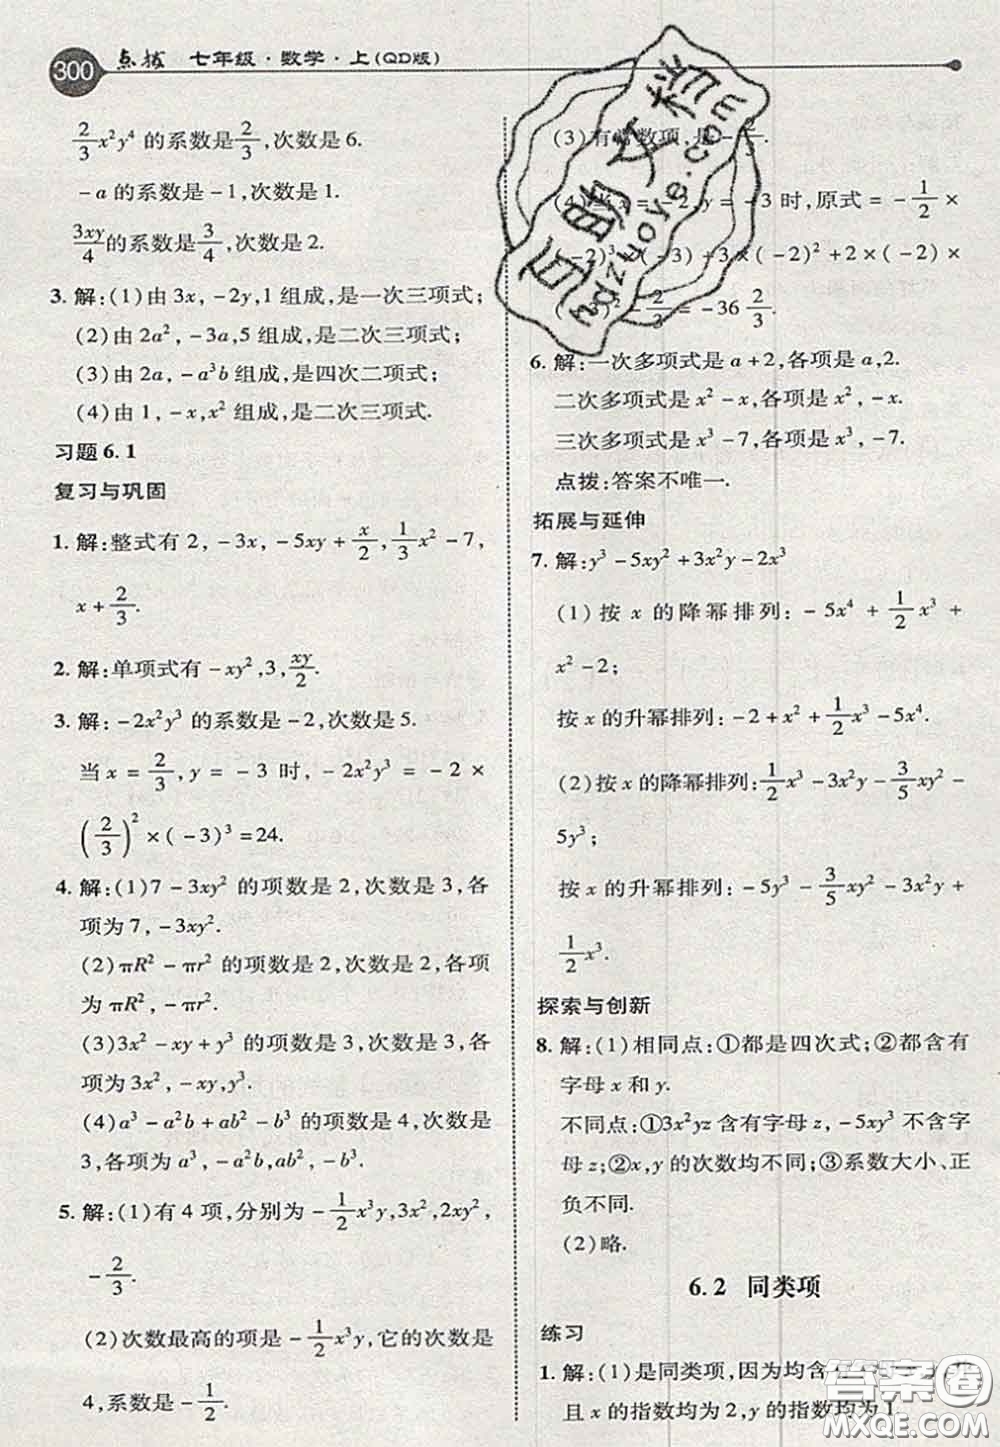 300 点拨 七年级·数学·上(QD版)
2/3 x²y⁴ 的系数是 2/3,次数是 6.
-a 的系数是 -1,次数是 1.
3xy/4 的系数是 3/4,次数是 2.
3. 解:(1)由 3x,-2y,1 组成,是一次三项式;
(2)由 2a²,-3a,5 组成,是二次三项式;
(3)由 2a,-a³b 组成,是四次二项式;
(4)由 1,-x,x² 组成,是二次三项式.
习题 6.1
复习与巩固
1. 解:整式有 2,-3x,-5xy+x/2,1/3 x²-7,
x+2/3.
2. 解:单项式有 -xy²,3,xy/2.
3. 解:-2x²y³ 的系数是 -2,次数是 5.
当 x=2/3,y=-3 时,-2x²y³=-2×
(2/3)²×(-3)³=24.
4. 解:(1)7-3xy² 的项数是 2,次数是 3,各
项为 7,-3xy².
(2)πR²-πr² 的项数是 2,次数是 2,各项
为 πR²,-πr².
(3)3x²-xy+y³ 的项数是 3,次数是 3,各
项为 3x²,-xy,y³.
(4)a³-a²b+ab²-b³ 的项数是 4,次数是
3,各项为 a³,-a²b,ab²,-b³.
5. 解:(1)有 4 项,分别为 -1/2 x³y,3x²,2xy²,
-2/3.
(2)次数最高的项是 -1/2 x³y,它的次数是
4,系数是 -1/2.
(3)有常数项,是 -2/3.
(4)当 x=-2,y=-3 时,原式=-1/2×
(-2)³×(-3)+3×(-2)²+2×(-2)×
(-3)²-2/3=-36 2/3.
6. 解:一次多项式是 a+2,各项是 a,2.
二次多项式是 x²-x,各项是 x²,-x.
三次多项式是 x³-7,各项是 x³,-7.
点拨:答案不唯一.
拓展与延伸
7. 解:y³-5xy²+3x²y-2x³
(1)按 x 的降幂排列:-5x⁴+1/2 x³+
x²-2;
按 x 的升幂排列:-2+x²+1/2 x³-5x⁴.
(2)按 x 的降幂排列:1/2 x³-3x²y-3/5 xy²-
5y³;
按 x 的升幂排列:-5y³-3/5 xy²-3x²y+
1/2 x³.
探索与创新
8. 解:(1)相同点:①都是四次式;②都含有
字母 x 和 y.
不同点:①3x²yz 含有字母 z,-5xy³ 不含字
母 z;②x,y 的次数均不同;③系数大小、正
负不同.
(2)略.
6.2 同类项
练习
1. 解:(1)是同类项,因为均含有
且 x 的指数均为 2,y 的指数均为 1.
百助文档
zyzhorye.com
答案圈
MXQE.COM